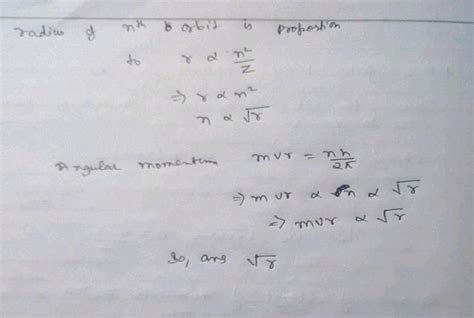 radius of nth orbit is proportion
to r ∝ n²/Z
⇒ r ∝ n²
n ∝ √r
Angular momentum mvr = nh/2π
⇒ mvr ∝ n ∝ √r
⇒ mvr ∝ √r
So, ans √r